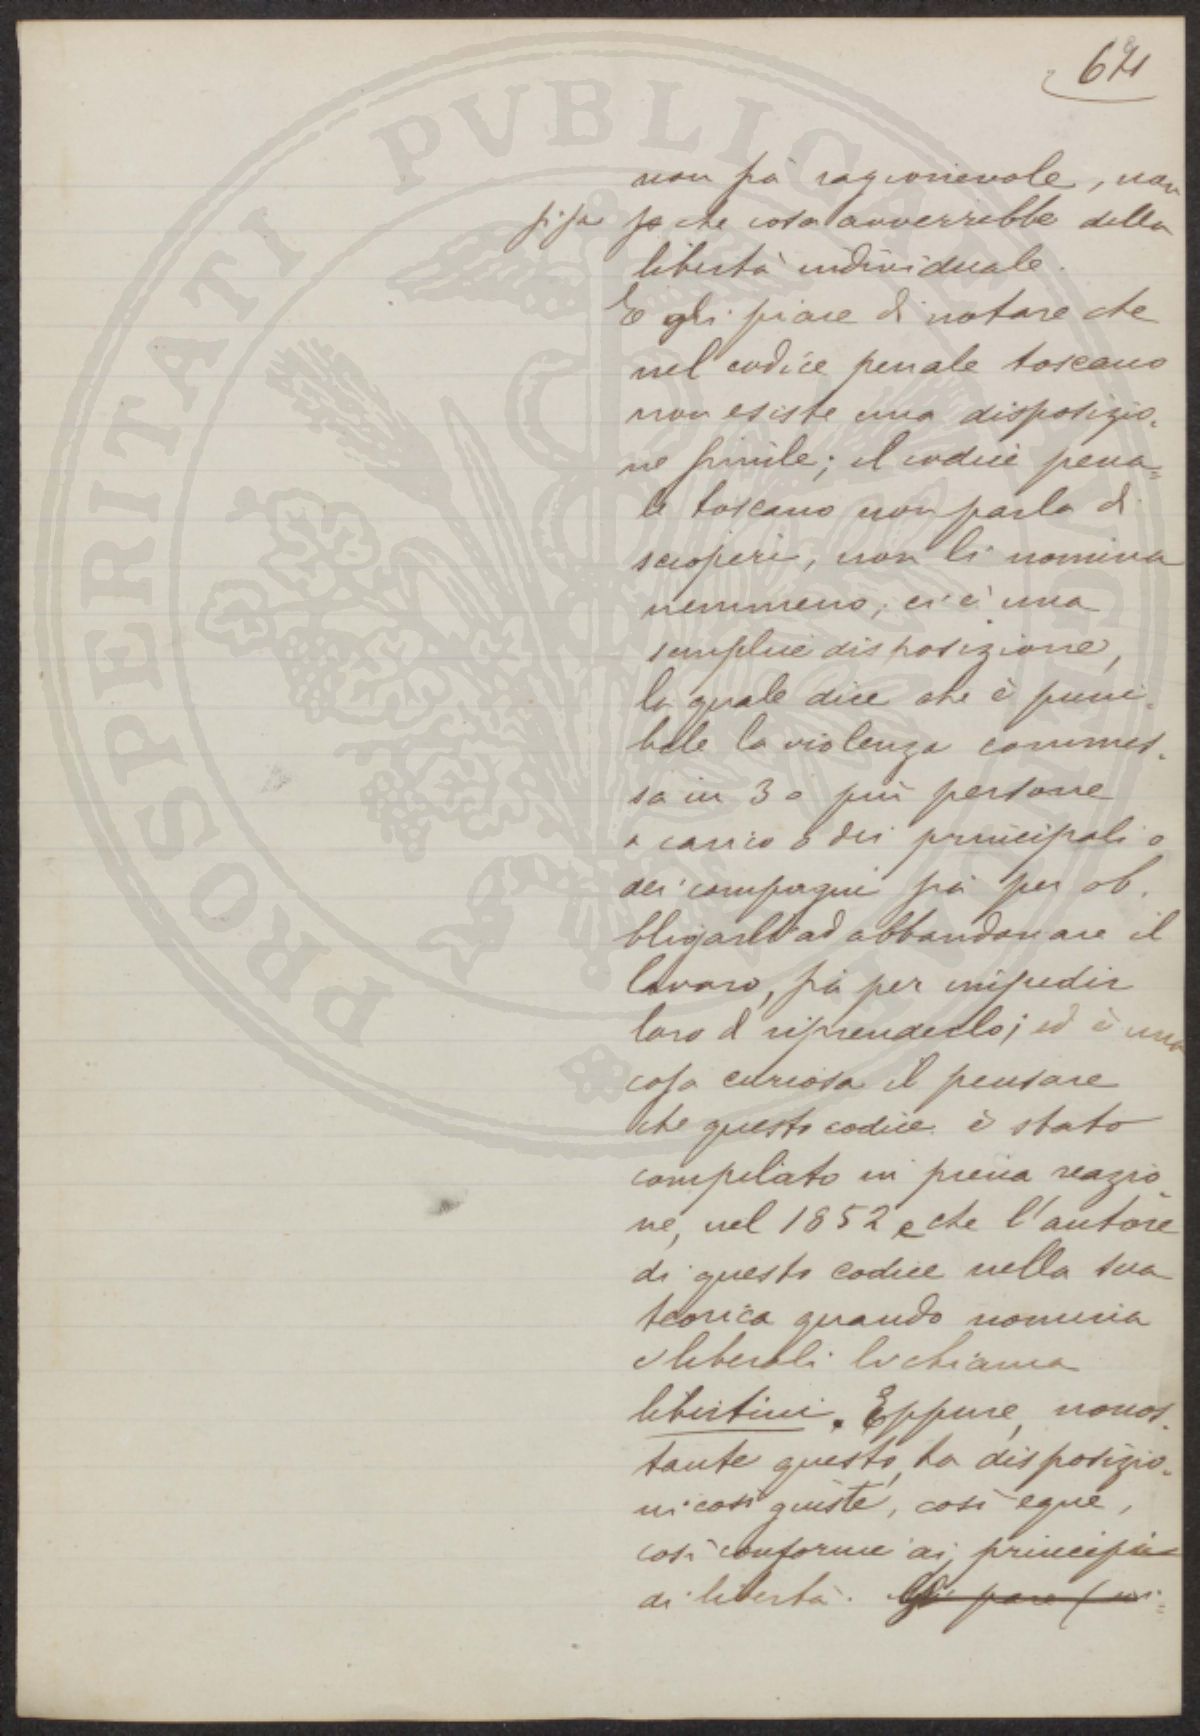 64
non sia ragionevole, non
si sa so che cosa avverrebbe della
libertà individuale.
E gli piace di notare che
nel codice penale toscano
non esiste una disposizio-
ne simile; il codice pena=
le toscano non parla di
scioperi, non li nomina
nemmeno, ci è una
semplice disposizione,
la quale dice che è puni-
bile la violenza commes-
sa in 3 o più persone
a carico o dei principali o
dei compagni sia per ob-
bligarli ad abbandonare il
lavoro, sia per impedir
loro di riprenderlo; ed è una
cosa curiosa il pensare
che questo codice è stato
compilato in piena reazio
ne, nel 1852 e che l'autore
di questo codice nella sua
teorica quando nomina
i liberali li chiama
libertini. Eppure, nonos-
tante questo, ha disposizio-
ni così giuste, così eque,
così conforme ai principii
di libertà. Gli pare
PROSPERITATI PVBLICAE